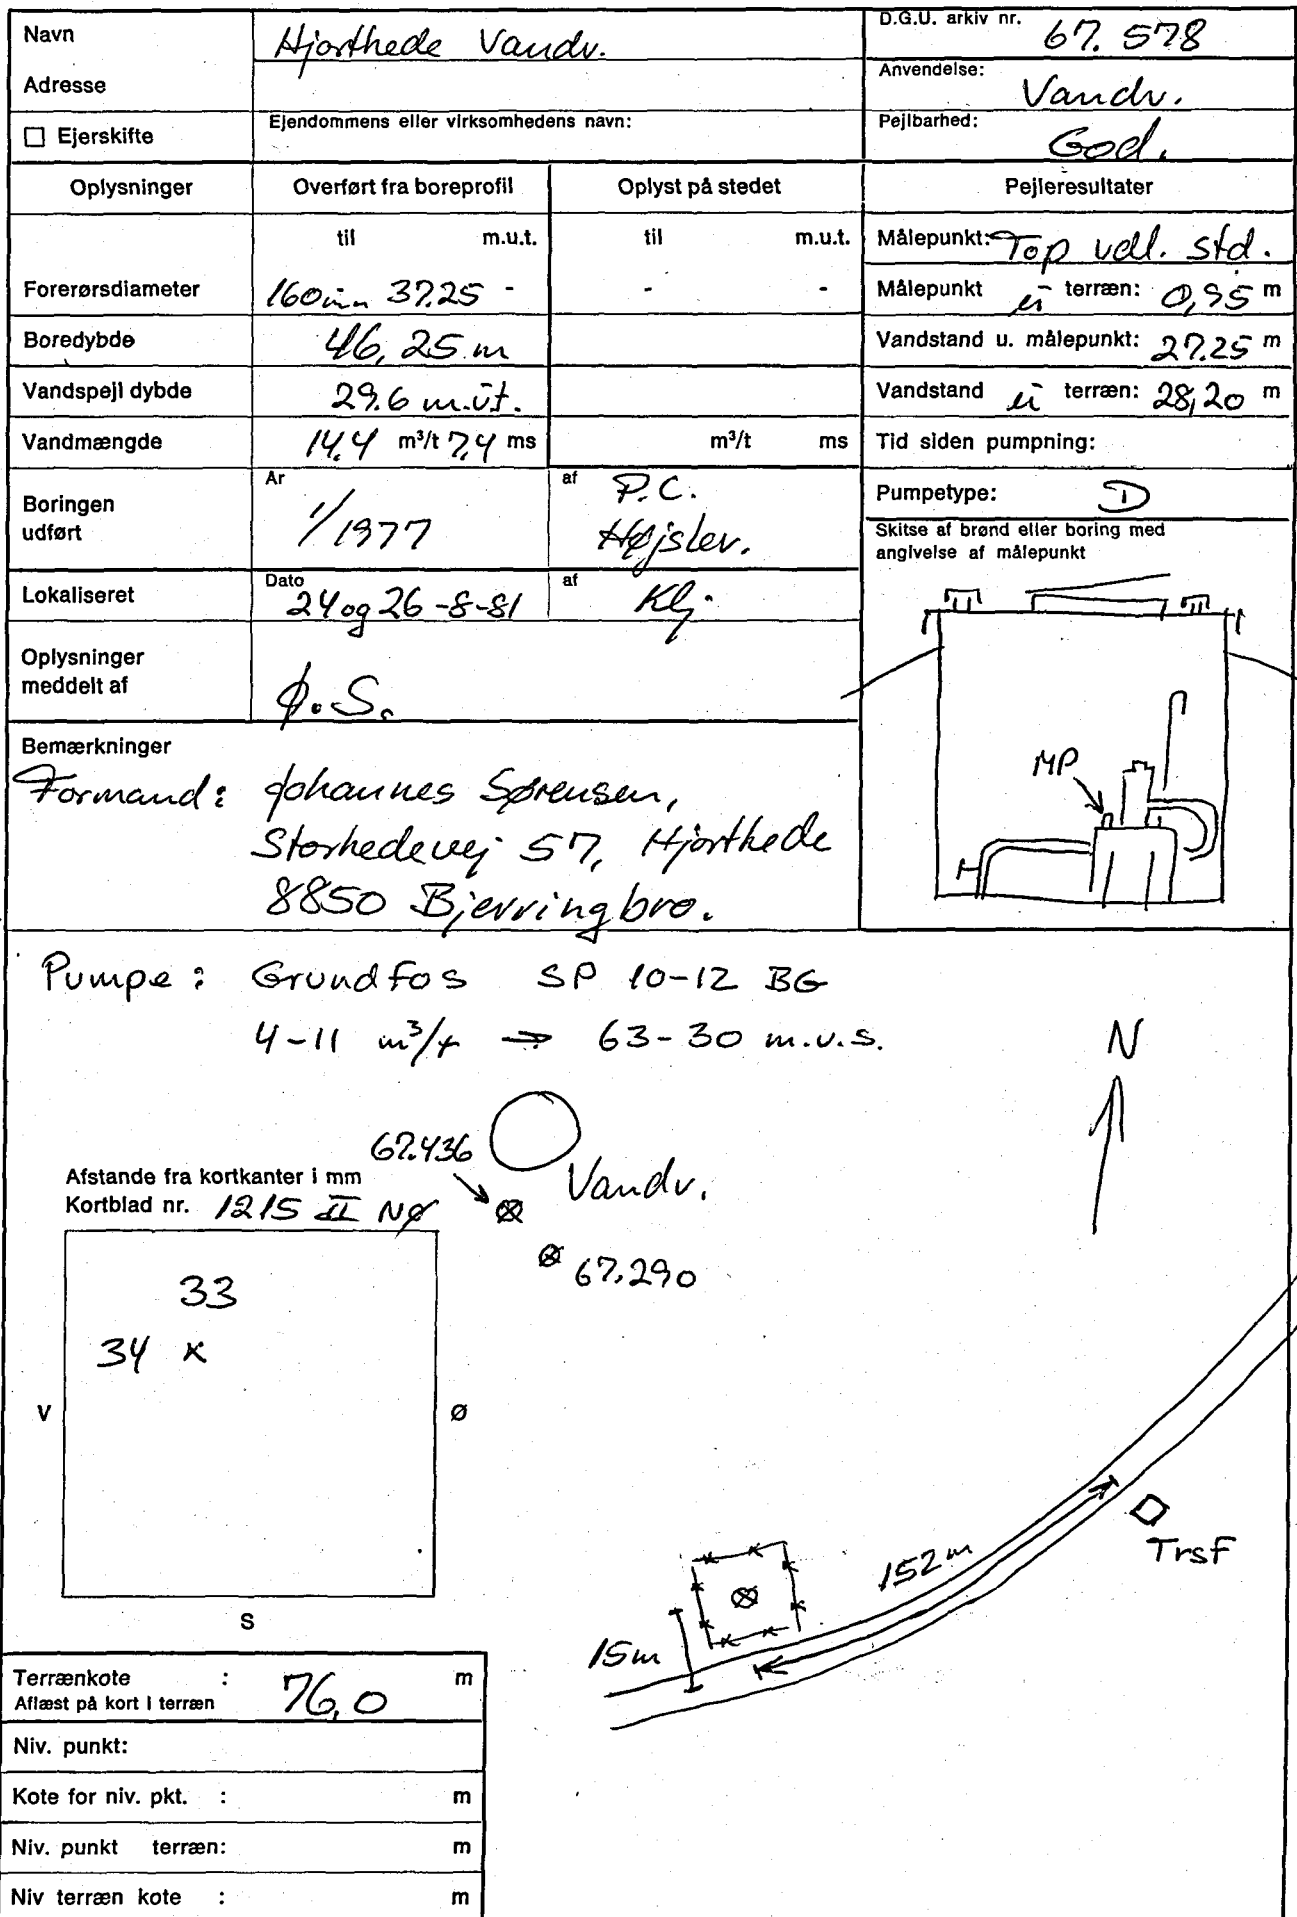 Navn Hjorthede Vandv.
D.G.U. arkiv nr. 67.578
Adresse
Anvendelse: Vandv.
☐ Ejerskifte
Ejendommens eller virksomhedens navn:
Pejlbarhed: God.
Oplysninger Overført fra boreprofil Oplyst på stedet Pejleresultater
til m.u.t. til m.u.t. Målepunkt: Top vell. std.
Forerørsdiameter 160mm 37.25 - - - Målepunkt u terræn: 0,95 m
Boredybde 46,25 m Vandstand u. målepunkt: 27.25 m
Vandspejl dybde 29.6 m.u.t. Vandstand u terræn: 28,20 m
Vandmængde 14,4 m³/t 7,4 ms m³/t ms Tid siden pumpning:
Boringen udført År 1/1977 af P.C. Højslev.
Pumpetype: D
Skitse af brønd eller boring med
angivelse af målepunkt
Lokaliseret Dato 24 og 26-8-81 af Klj.
Oplysninger
meddelt af Ø.S.
MP
Bemærkninger
Formand: Johannes Sørensen,
Storhedevej 57, Hjorthede
8850 Bjerringbro.
Pumpe: Grundfos SP 10-12 BG
4-11 m³/t → 63-30 m.v.s.
N
67.436
Vandv.
Afstande fra kortkanter i mm
Kortblad nr. 1215 II NØ
67.290
33
34 x
V Ø
S
152 m
Trsf
15m
Terrænkote : 76,0 m
Aflæst på kort i terræn
Niv. punkt:
Kote for niv. pkt. : m
Niv. punkt terræn: m
Niv terræn kote : m